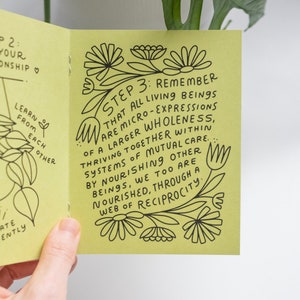 P 2:
YOUR
ONSHIP ♡
LEARN
FROM
EACH
OTHER
ATE
ENTLY
STEP 3: REMEMBER
THAT ALL LIVING BEINGS
ARE MICRO-EXPRESSIONS
OF A LARGER WHOLENESS,
THRIVING TOGETHER WITHIN
SYSTEMS OF MUTUAL CARE.
BY NOURISHING OTHER
BEINGS, WE TOO ARE
NOURISHED, THROUGH A
WEB OF RECIPROCITY